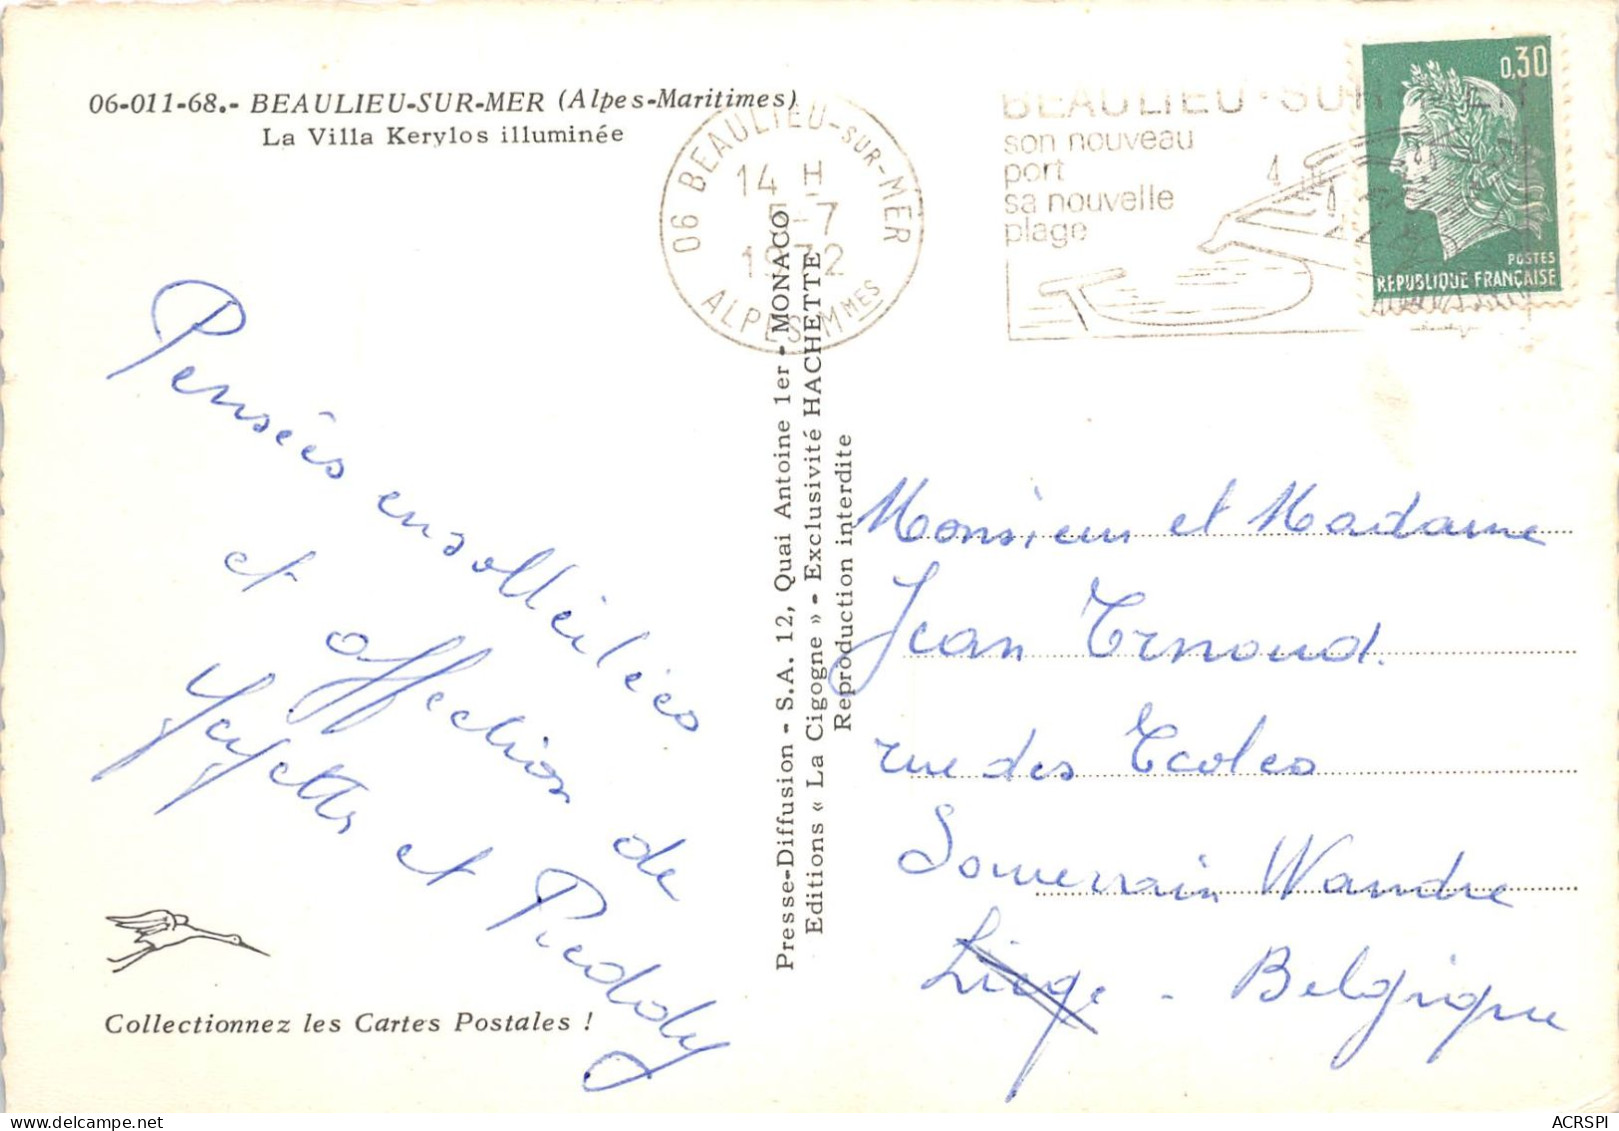 06-011-68.- BEAULIEU-SUR-MER (Alpes-Maritimes)
La Villa Kerylos illuminée
06 BEAULIEU-SUR-MER
14 H
5-7
1972
ALPES-MMES
BEAULIEU-SUR-MER
son nouveau
port
sa nouvelle
plage
0,30
POSTES
REPUBLIQUE FRANÇAISE
Pensées ensolleilées
et affection de
et Pieddy
Presse-Diffusion - S.A. 12, Quai Antoine 1er - MONACO
Editions « La Cigogne » - Exclusivité HACHETTE
Reproduction interdite
Monsieur et Madame
Jean Ernoud.
rue des Ecoles
Souverain Wandre
Liège - Belgique
Collectionnez les Cartes Postales !
ACRSPI